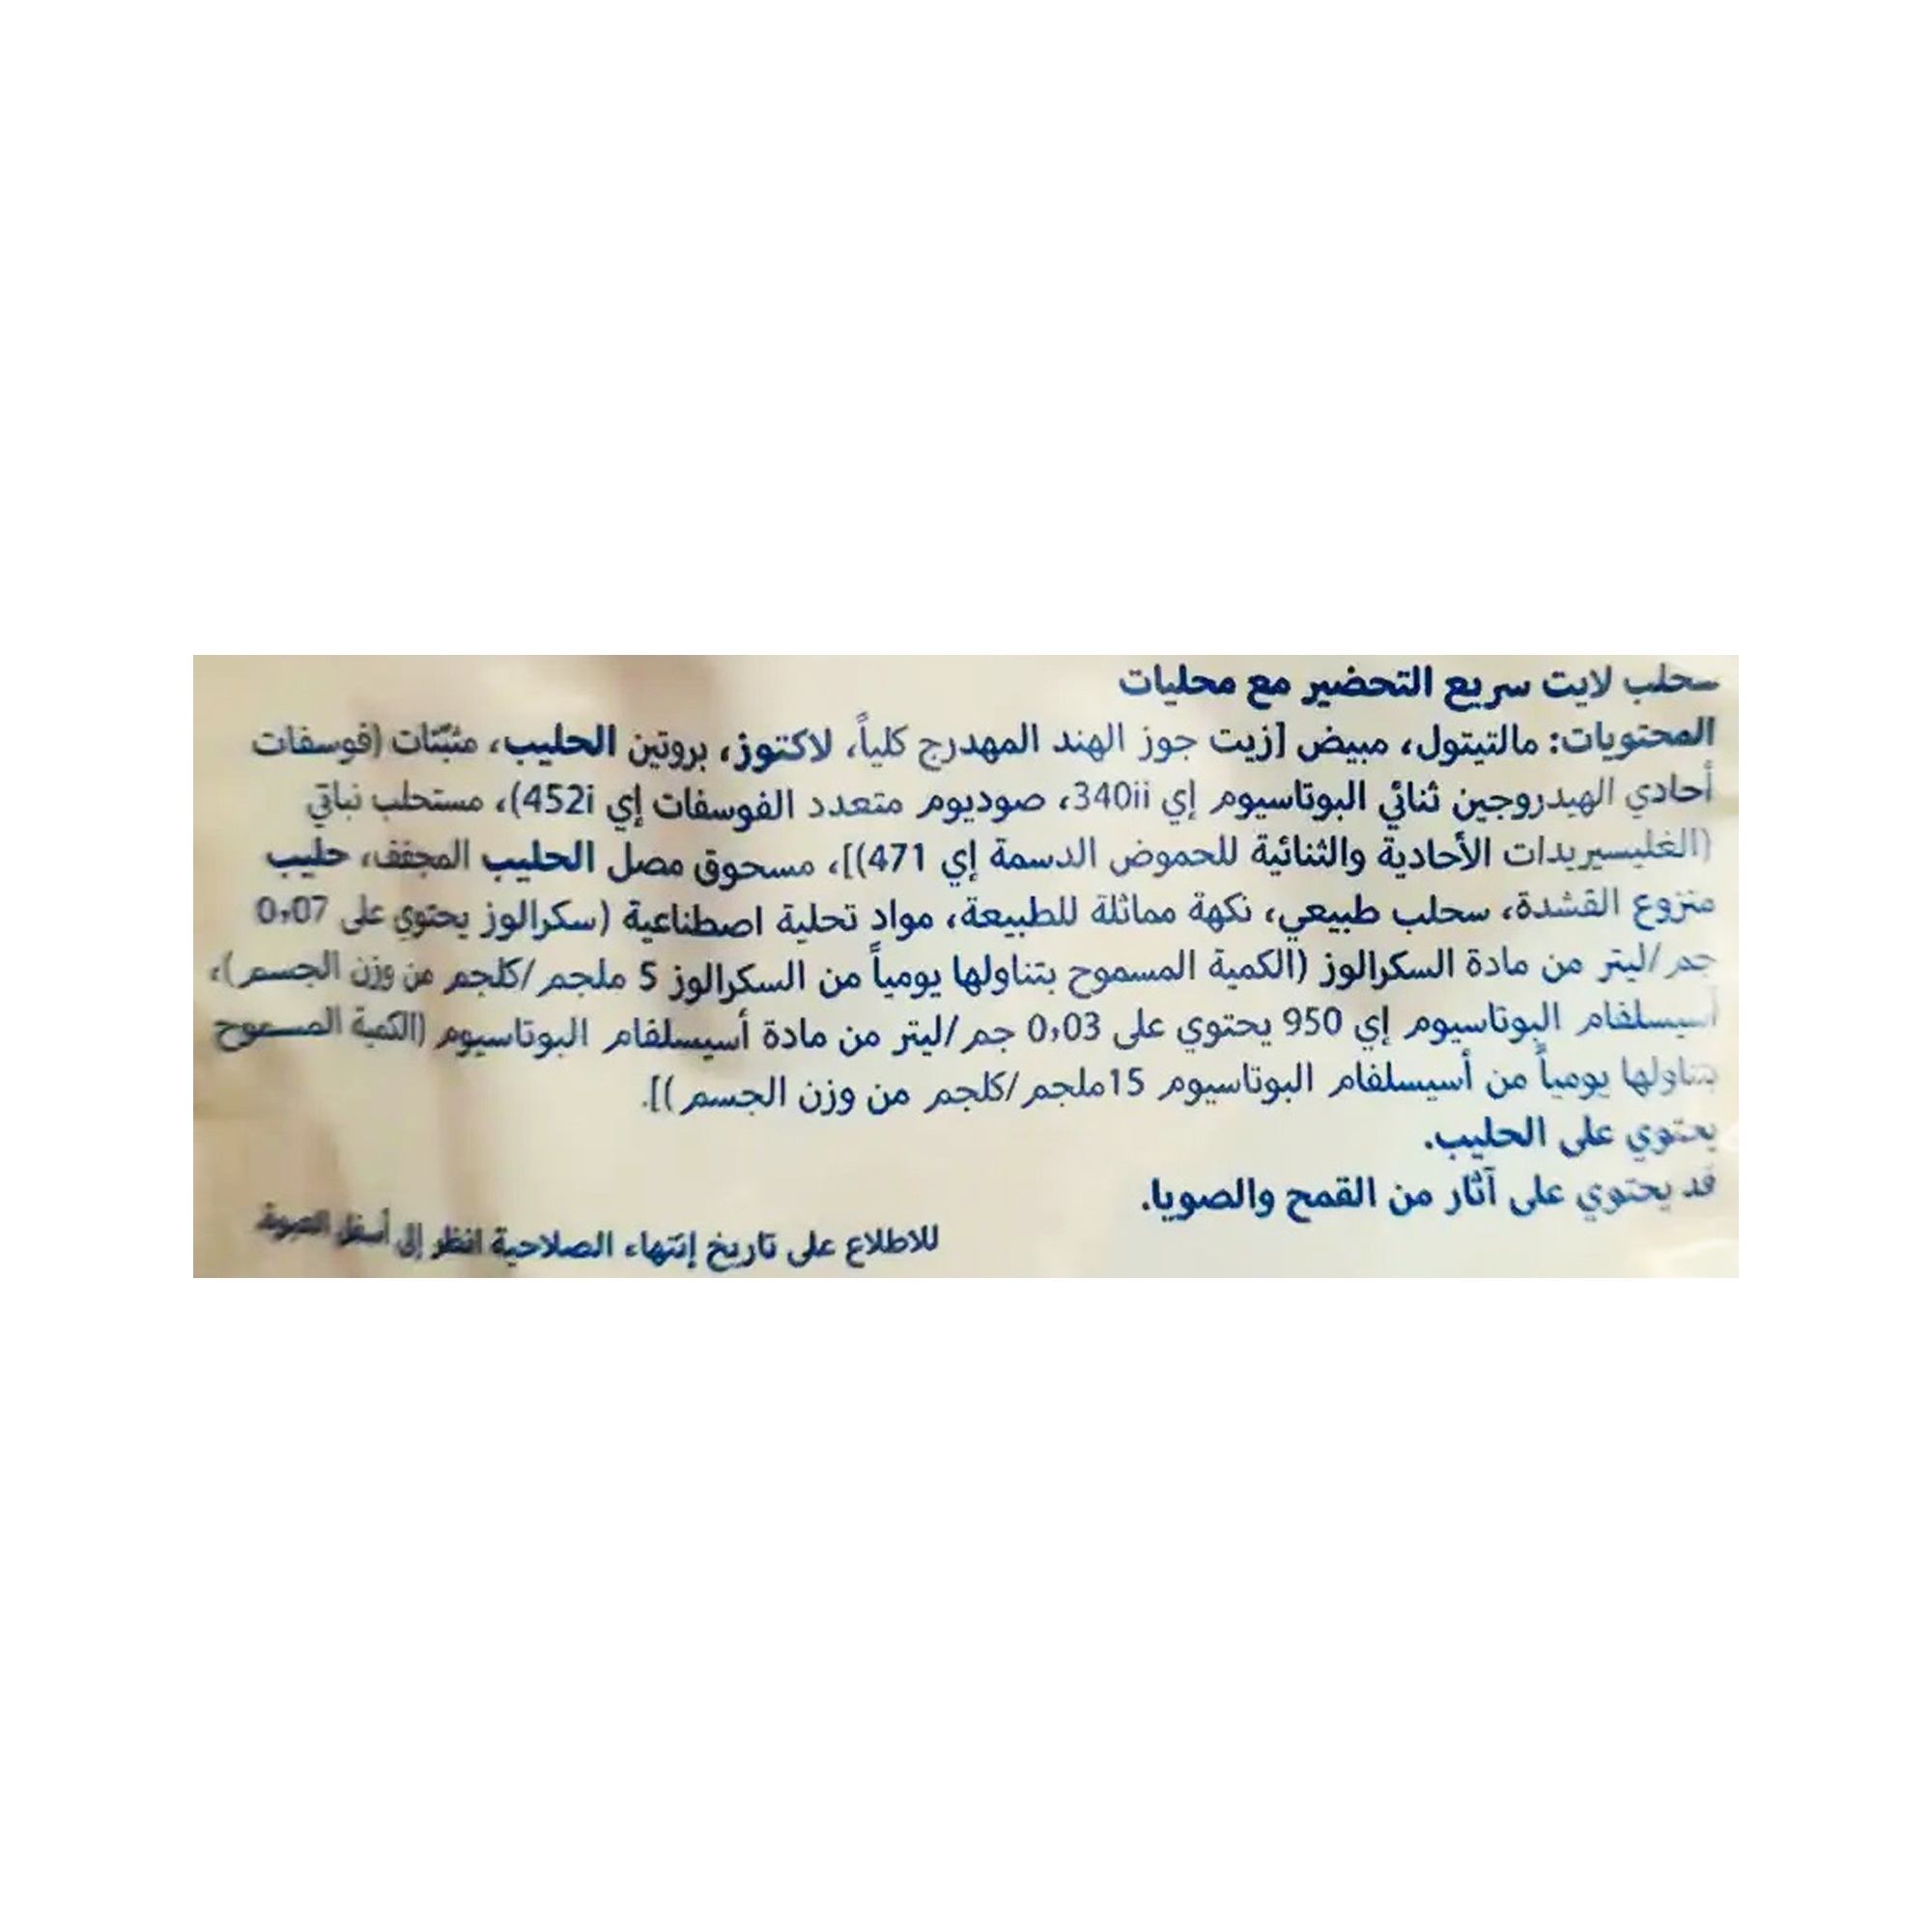 سحلب لايت سريع التحضير مع محليات
المحتويات: مالتيتول، مبيض [زيت جوز الهند المهدرج كلياً، لاكتوز، بروتين الحليب، مثبّتات (فوسفات
أحادي الهيدروجين ثنائي البوتاسيوم إي 340ii، صوديوم متعدد الفوسفات إي 452i)، مستحلب نباتي
(الغليسيريدات الأحادية والثنائية للحموض الدسمة إي 471)]، مسحوق مصل الحليب المجفف، حليب
منزوع القشدة، سحلب طبيعي، نكهة مماثلة للطبيعة، مواد تحلية اصطناعية (سكرالوز يحتوي على 0,07
جم/ليتر من مادة السكرالوز (الكمية المسموح بتناولها يومياً من السكرالوز 5 ملجم/كلجم من وزن الجسم)،
أسيسلفام البوتاسيوم إي 950 يحتوي على 0,03 جم/ليتر من مادة أسيسلفام البوتاسيوم (الكمية المسموح
بتناولها يومياً من أسيسلفام البوتاسيوم 15ملجم/كلجم من وزن الجسم)].
يحتوي على الحليب.
قد يحتوي على آثار من القمح والصويا.
للاطلاع على تاريخ إنتهاء الصلاحية انظر إلى أسفل العبوة.